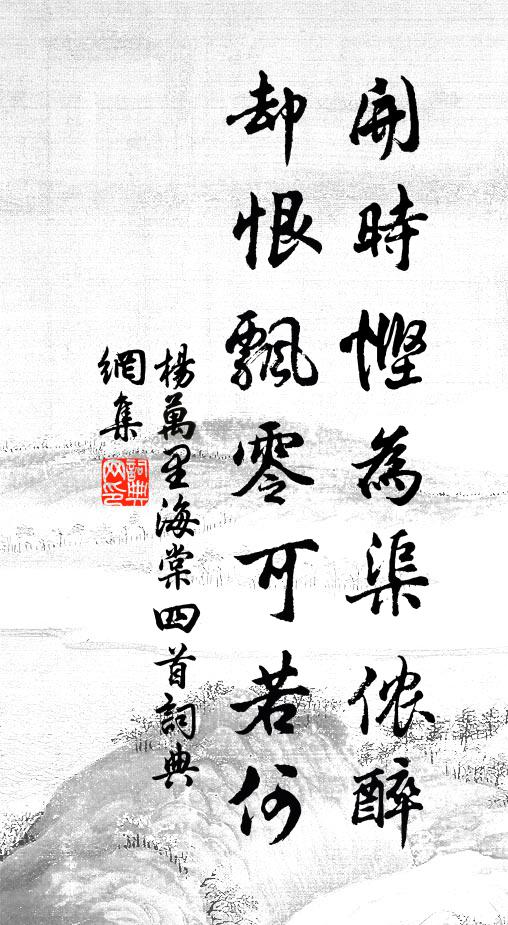 開時慳為渠儂醉
却恨飄零可若何
楊萬里海棠四首詞典
網集
詞典
网印